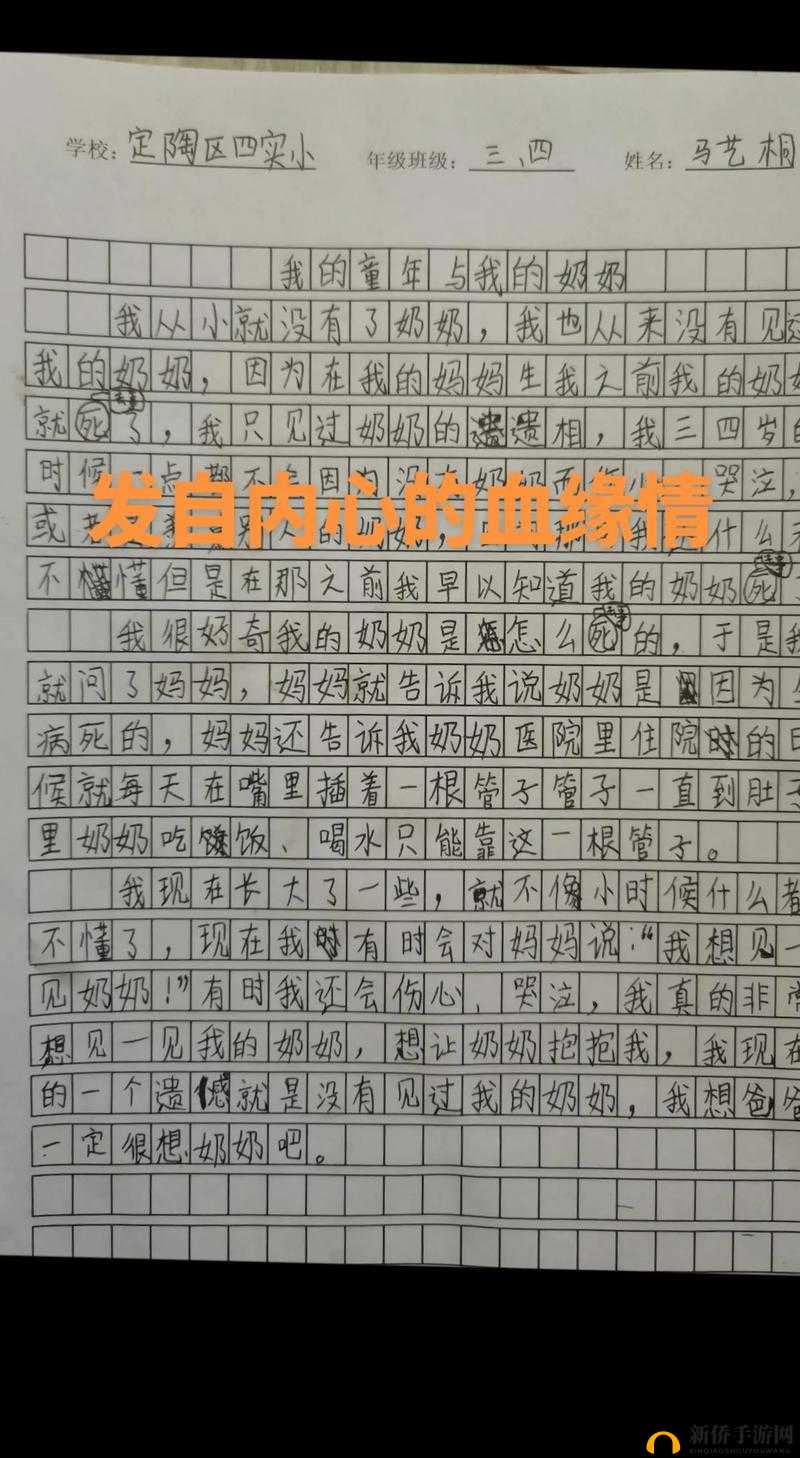 学校：定陶区四实小 年级班级：三、四 姓名：马艺桐
我的童年与我的奶奶
我从小就没有了奶奶，我也从来没有见过
我的奶奶，因为在我的妈妈生我之前我的奶奶
就死了，我只见过奶奶的遗相，我三四岁的
时候一点都不会因为没有奶奶而伤心、哭泣，
发自内心的血缘情
或 的奶奶， 什么
不懂但是在那之前我早以知道我的奶奶死
去世
我很好奇我的奶奶是怎么死的，于是我
就问了妈妈，妈妈就告诉我说奶奶是因为生
病死的，妈妈还告诉我奶奶医院里住院的
候就每天在嘴里插着一根管子管子一直到肚子
里奶奶吃饭、喝水只能靠这一根管子。
我现在长大了一些，就不像小时候什么都
不懂了，现在我有时会对妈妈说：“我想见一
见奶奶！”有时我还会伤心、哭泣，我真的非常
想见一见我的奶奶，想让奶奶抱抱我，我现在
的一个遗憾就是没有见过我的奶奶，我想爸爸
一定很想奶奶吧。
新侨手游网
XINQIAOSHOUYOUWANG